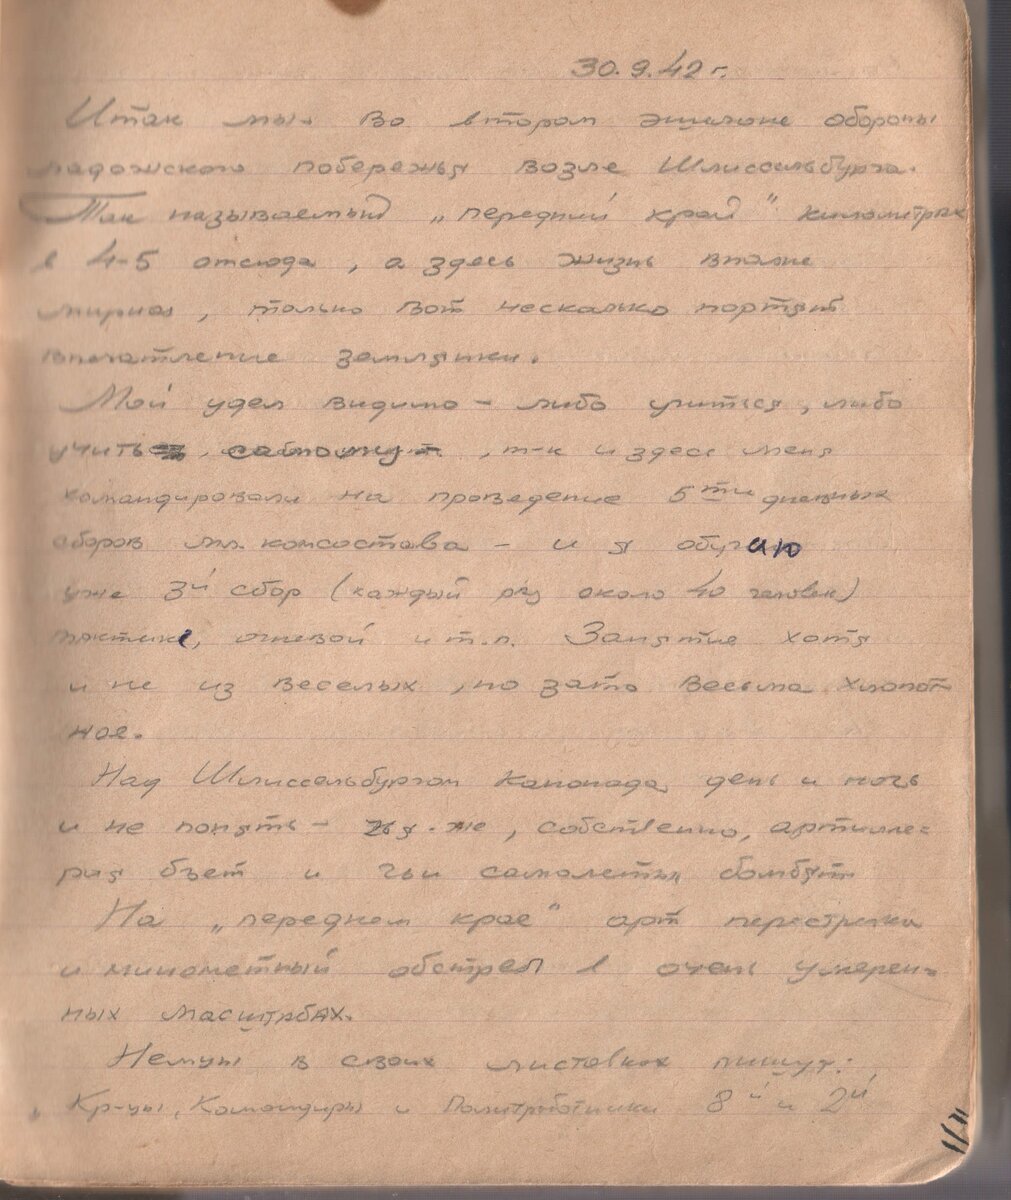 30.9.42 г.
Итак мы во втором эшелоне обороны
ладожского побережья возле Шлиссельбурга.
Так называемый „передний край" километрах
в 4-5 отсюда, а здесь жизнь вполне
мирная, только вот несколько портят
впечатление землянки.
Мой удел видимо - либо учиться, либо
учить, т-к и здесь меня
командировали на проведение 5ти дневных
сборов мл. комсостава - и я обучаю
уже 3й сбор (каждый раз около 40 человек)
тактике, огневой и т.п. Занятие хотя
и не из веселых, но зато весьма хлопот
ное.
Над Шлиссельбургом канонада день и ночь
и не понять - чья-же, собственно, артилле=
рия бьет и чьи самолеты бомбят
На „переднем крае" арт перестрелки
и минометный обстрел в очень умерен=
ных масштабах.
Немцы в своих листовках пишут:
„Кр-цы, Командиры и Политработники 8й и 2й